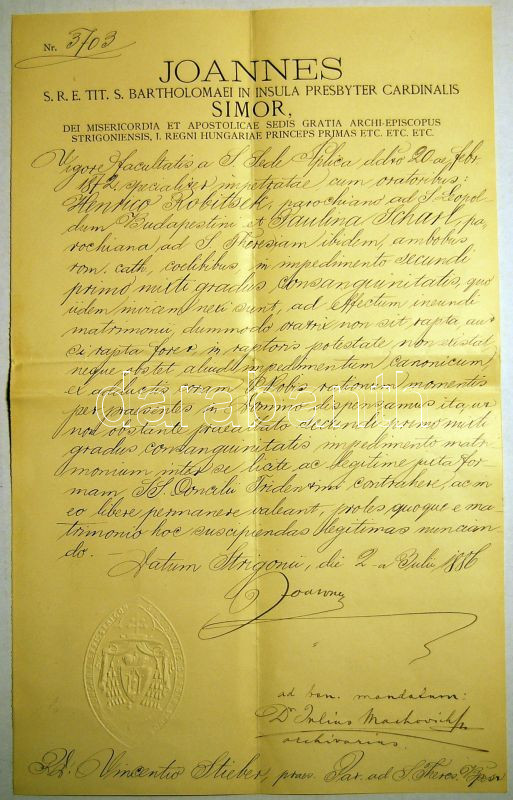 Nr. 3703
JOANNES
S. R. E. TIT. S. BARTHOLOMAEI IN INSULA PRESBYTER CARDINALIS
SIMOR,
DEI MISERICORDIA ET APOSTOLICAE SEDIS GRATIA ARCHI-EPISCOPUS
STRIGONIENSIS, I. REGNI HUNGARIAE PRINCEPS PRIMAS ETC. ETC. ETC.
Vigore facultatis a S. Sede Aplica ddto 20ae febr
1872 specialiter impetratae cum oratoribus:
Henrico Robitsek, parochiano ad S. Leopol-
dum Budapestini et Paulina Scharl, pa-
rochiana ad S. Theresiam ibidem, ambobus
rom. cath. coelibibus, in impedimento secundi
primo mixti gradus consanguinitatis, quo
iidem invicem nexi sunt, ad effectum ineundi
matrimonii, dummodo oratrix non sit rapta, aut
si rapta foret, in raptoris potestate non existat
neque obstet aliud impedimentum canonicum
ex adductis coram Nobis rationum momentis
per praesentes in Domino dispensamus ita, ut
non obstante praecitato secundi primo mixti
gradus consanguinitatis impedimento matri-
monium inter se licite ac legitime juxta for-
mam SS. Concilii Tridentini contrahere, ac in
eo libere permanere valeant, proles quoque e ma-
trimonio hoc suscipiendas legitimas nuncian-
do.
Datum Strigonii, die 2-a Julii 1886
Joannes
darabanth
ad ben. mandatum:
Dr Julius Machovich
archivarius.
Vincentio Stieber, Par. ad S. Theres.